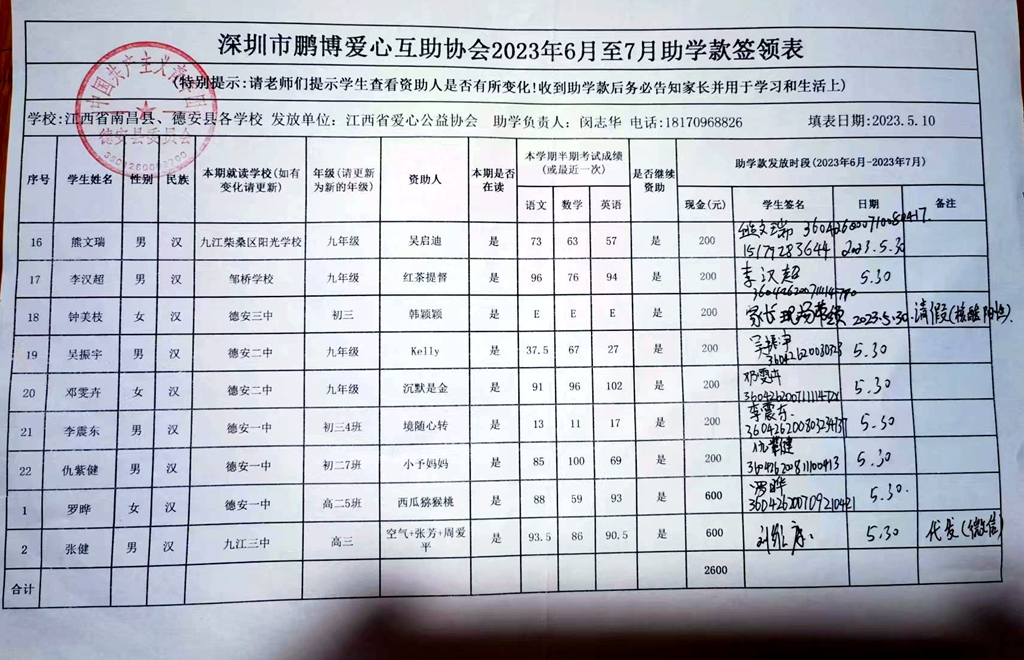 深圳市鹏博爱心互助协会2023年6月至7月助学款签领表
(特别提示:请老师们提示学生查看资助人是否有所变化!收到助学款后务必告知家长并用于学习和生活上)
学校:江西省南昌县、德安县各学校 发放单位: 江西省爱心公益协会 助学负责人: 闵志华 电话:18170968826 填表日期:2023.5.10
中国共产主义青年团
德安县委员会
序号 学生姓名 性别 民族 本期就读学校(如有变化请更新) 年级(请更新为新的年级) 资助人 本期是否在读 本学期半期考试成绩(或最近一次) 是否继续资助 助学款发放时段(2023年6月-2023年7月)
语文 数学 英语 现金(元) 学生签名 日期 备注
16 熊文瑞 男 汉 九江柴桑区阳光学校 九年级 吴启迪 是 73 63 57 是 200 熊文瑞 15179283644 2023.5.30
17 李汉超 男 汉 邹桥学校 九年级 红茶提督 是 96 76 94 是 200 李汉超 5.30
18 钟美枝 女 汉 德安三中 初三 韩颖颖 是 E E E 是 200 家长现场带领 2023.5.30 请假
19 吴振宇 男 汉 德安二中 九年级 Kelly 是 37.5 67 27 是 200 吴振宇 5.30
20 邓雯卉 女 汉 德安二中 九年级 沉默是金 是 91 96 102 是 200 邓雯卉 5.30
21 李震东 男 汉 德安一中 初三4班 境随心转 是 13 11 17 是 200 李震东 5.30
22 仇紫健 男 汉 德安一中 初二7班 小予妈妈 是 85 100 69 是 200 仇紫健 360426200811100413 5.30
1 罗晔 女 汉 德安一中 高二5班 西瓜猕猴桃 是 88 59 93 是 600 罗晔 360426200709210421 5.30.
2 张健 男 汉 九江三中 高三 空气+张芳+周爱平 是 93.5 86 90.5 是 600 5.30 代发(微信)
合计 2600